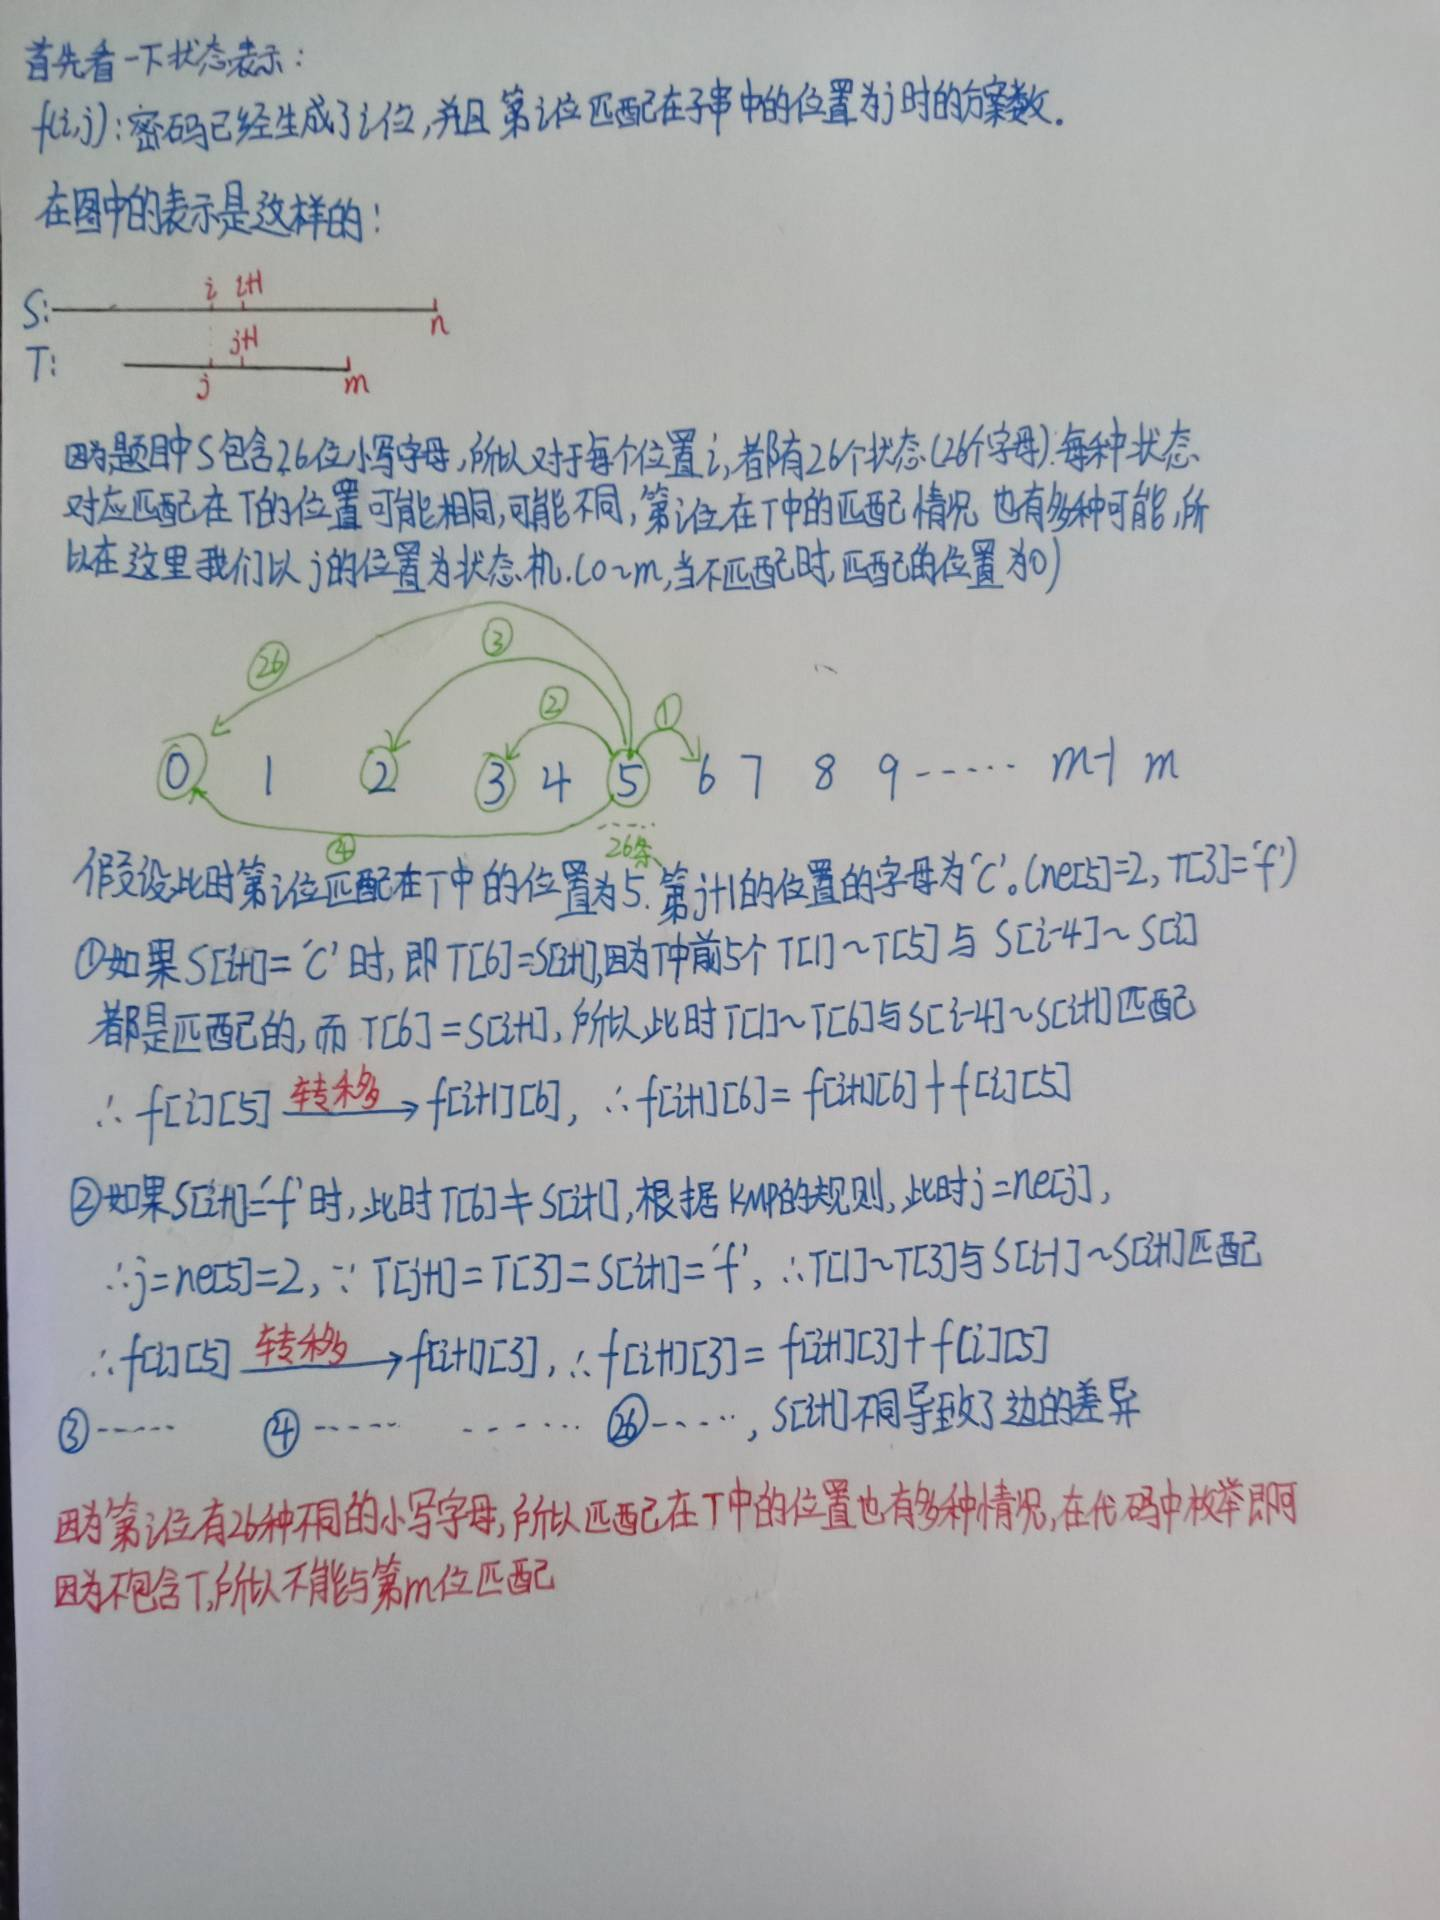 首先看一下状态表示:
f(i,j):密码已经生成了i位,并且第i位匹配在子串中的位置为j时的方案数.
在图中的表示是这样的:
i i+1
S: n
j+1
T: j m
因为题目中S包含26位小写字母,所以对于每个位置i,都有26个状态(26个字母).每种状态
对应匹配在T的位置可能相同,可能不同,第i位在T中的匹配情况也有多种可能,所
以在这里我们以j的位置为状态机.(0~m,当不匹配时,匹配的位置为0)
㉖ ③ ② ①
0 1 2 3 4 5 6 7 8 9 ······ m-1 m
④ ····· 26条
假设此时第i位匹配在T中的位置为5.第j+1的位置的字母为'c'。(ne[5]=2,T[3]='f')
①如果S[i+1]='c'时,即T[6]=S[i+1],因为T中前5个T[1]~T[5]与S[i-4]~S[i]
都是匹配的,而T[6]=S[i+1],所以此时T[1]~T[6]与S[i-4]~S[i+1]匹配
∴f[i][5] 转移→ f[i+1][6], ∴f[i+1][6]=f[i+1][6]+f[i][5]
②如果S[i+1]='f'时,此时T[6]≠S[i+1],根据KMP的规则,此时j=ne[j],
∴j=ne[5]=2,∵T[j+1]=T[3]=S[i+1]='f',∴T[1]~T[3]与S[i-1]~S[i+1]匹配
∴f[i][5] 转移→ f[i+1][3],∴f[i+1][3]=f[i+1][3]+f[i][5]
③······ ④······ ······ ㉖·····,S[i+1]不同导致了边的差异
因为第i位有26种不同的小写字母,所以匹配在T中的位置也有多种情况,在代码中枚举即可
因为不包含T,所以不能与第m位匹配